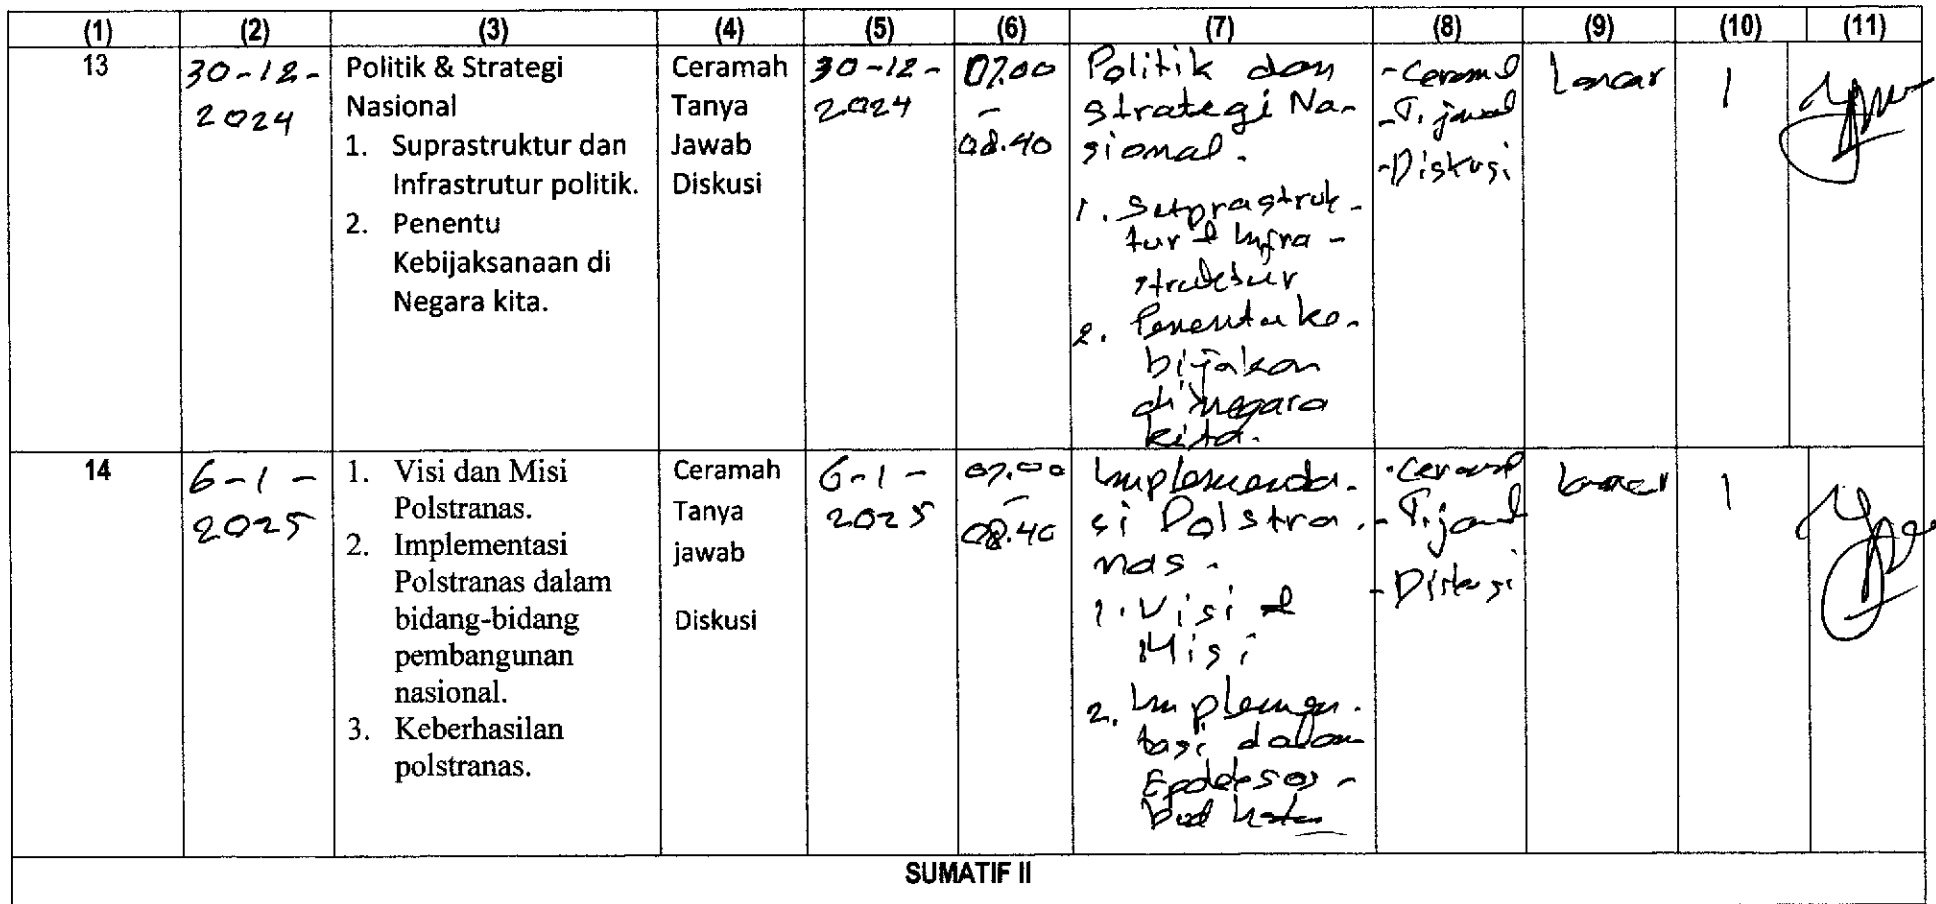 (1) (2) (3) (4) (5) (6) (7) (8) (9) (10) (11)
13
30-12-
2024
Politik & Strategi
Nasional
1. Suprastruktur dan
Infrastrutur politik.
2. Penentu
Kebijaksanaan di
Negara kita.
Ceramah
Tanya
Jawab
Diskusi
30-12-
2024
07.00
-
08.40
Politik dan
strategi Na-
sional.
1. Suprastruk-
tur & Infra-
struktur
2. Penentu ke-
bijakan
di negara
kita.
- Ceramah
- T. jawab
- Diskusi
Lancar
1
14
6-1-
2025
1. Visi dan Misi
Polstranas.
2. Implementasi
Polstranas dalam
bidang-bidang
pembangunan
nasional.
3. Keberhasilan
polstranas.
Ceramah
Tanya
jawab
Diskusi
6-1-
2025
07.00
-
08.40
Implementa-
si Polstra-
nas.
1. Visi &
Misi
2. Implemen-
tasi dalam
bud
- Ceramah
- T. jawab
- Diskusi
Lancar
1
SUMATIF II